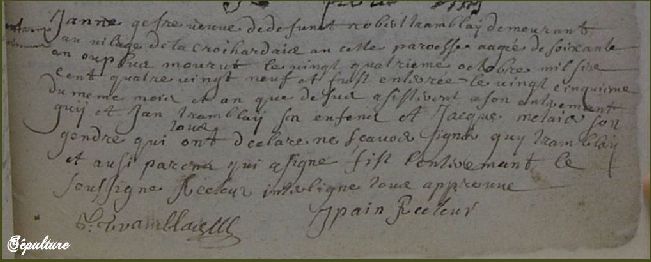 Janne gefre veuve de defunt robert tramblay demeurant
au vilage de la crochardaie an cette paroesse aagee de soixante
en mourut le vingt quatrieme octobre mil six
cent quatre vingt neuf et fust enterree le vingt cinquieme
du meme mois et an que desus asistivent a son enterement
guy et Jan tramblay son enfend et Jacque metaie son
tous
gendre qui ont declare ne scavoir signe guy tramblay
et ausi qui a signe fist lenterement le
soussigne Recteur interligne tous approuve
tramblai Recteur
Sépulture